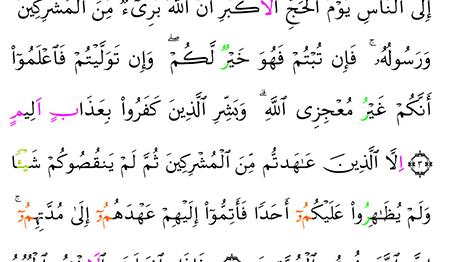 إِلَى ٱلنَّاسِ يَوْمَ ٱلْحَجِّ ٱلَاكْبَرِ أَنَّ ٱللَّهَ بَرِىٓءٌ مِّنَ ٱلْمُشْرِكِينَ
وَرَسُولُهُۥۚ فَإِن تُبْتُمْ فَهُوَ خَيْرٌ لَّكُمْۖ وَإِن تَوَلَّيْتُمْ فَٱعْلَمُوٓا۟
أَنَّكُمْ غَيْرُ مُعْجِزِى ٱللَّهِۗ وَبَشِّرِ ٱلَّذِينَ كَفَرُوا۟ بِعَذَابٍ اَلِيمٍ
﴿٣﴾ اِلَّا ٱلَّذِينَ عَٰهَدتُّم مِّنَ ٱلْمُشْرِكِينَ ثُمَّ لَمْ يَنقُصُوكُمْ شَيْـًٔا
وَلَمْ يُظَٰهِرُوا۟ عَلَيْكُمُۥٓ أَحَدًا فَأَتِمُّوٓا۟ إِلَيْهِمْ عَهْدَهُمُۥٓ إِلَىٰ مُدَّتِهِمُۥٓۚ